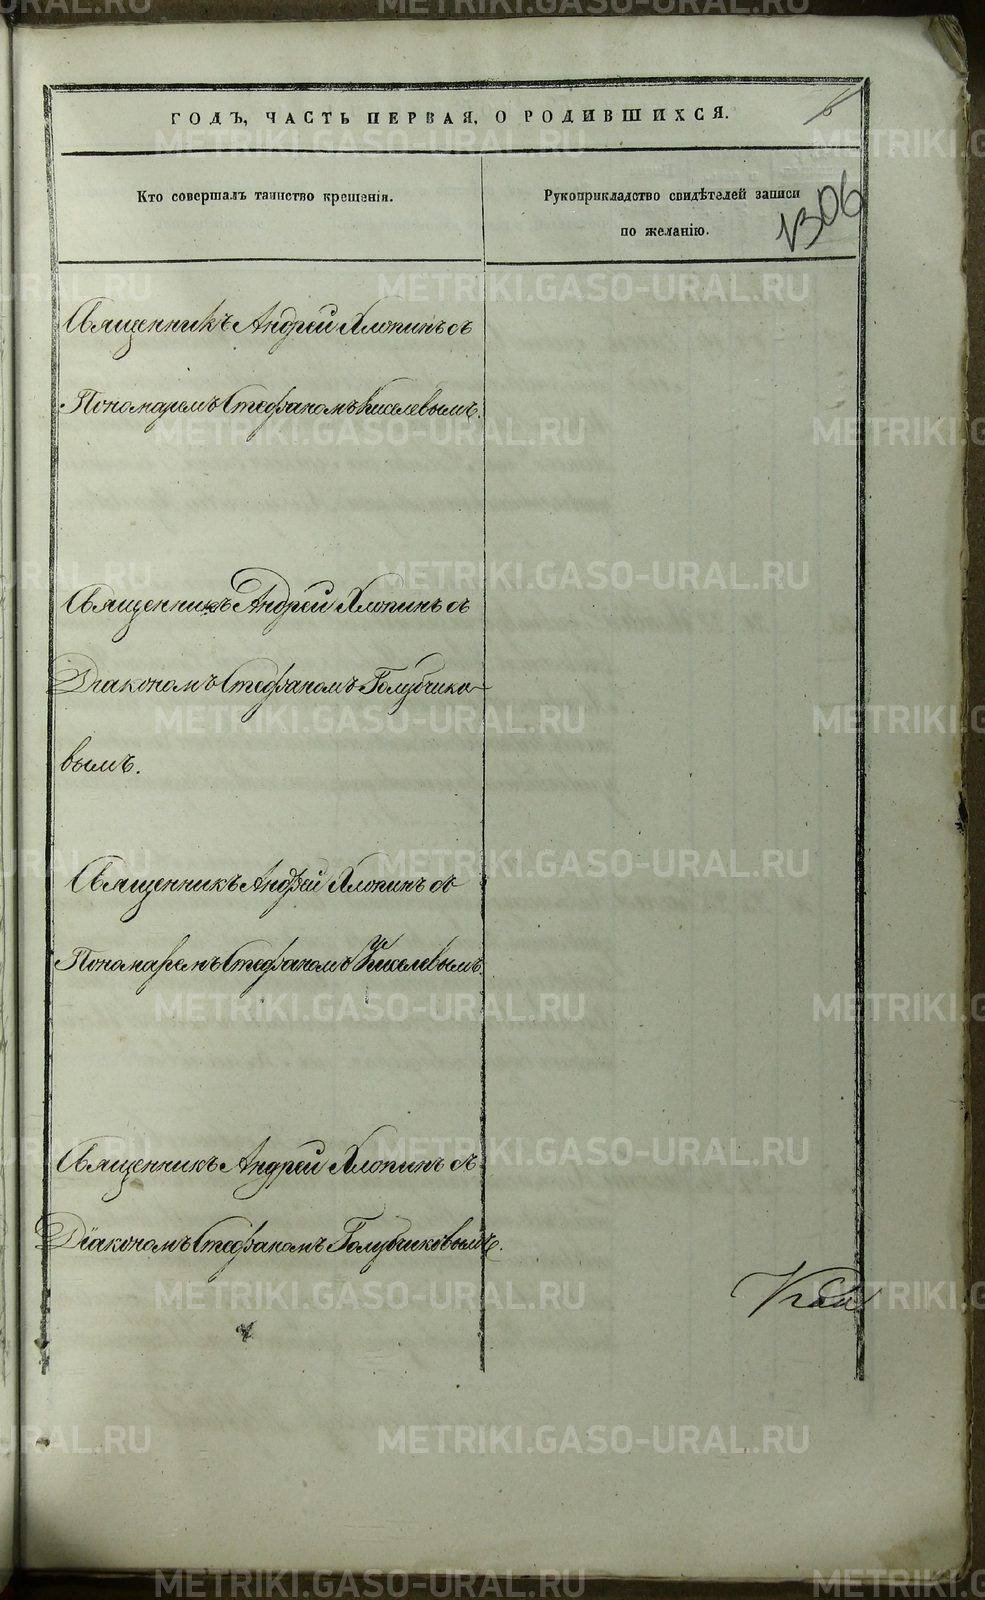 ГОДЪ, ЧАСТЬ ПЕРВАЯ, О РОДИВШИХСЯ.
6
Кто совершалъ таинство крещенія.
Рукоприкладство свидѣтелей записи
по желанію.
1306
Священникъ Андрей Хлопинъ съ
Пономаремъ Стефаномъ Киселевымъ.
Священникъ Андрей Хлопинъ съ
Діакономъ Стефаномъ Голубчико-
вымъ.
Священникъ Андрей Хлопинъ съ
Пономаремъ Стефаномъ Киселевымъ.
Священникъ Андрей Хлопинъ съ
Діакономъ Стефаномъ Голубчиковымъ.
METRIKI.GASO-URAL.RU